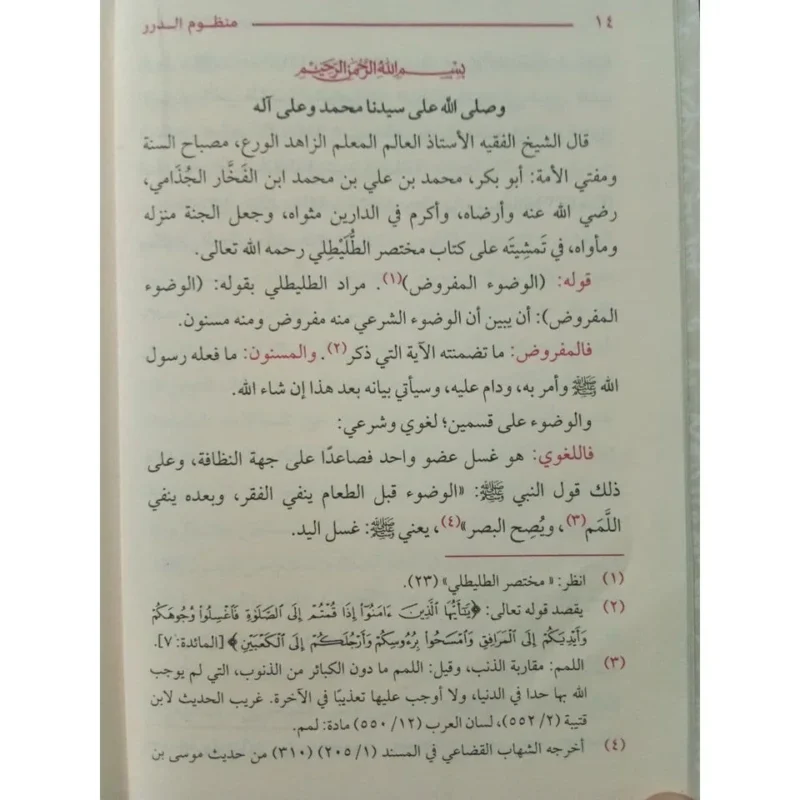 ١٤ منظوم الدرر
بسم الله الرحمن الرحيم
وصلى الله على سيدنا محمد وعلى آله
قال الشيخ الفقيه الأستاذ العالم المعلم الزاهد الورع، مصباح السنة
ومفتي الأمة: أبو بكر، محمد بن علي بن محمد ابن الفَخَّار الجُذَامي،
رضي الله عنه وأرضاه، وأكرم في الدارين مثواه، وجعل الجنة منزله
ومأواه، في تَمشِيتَه على كتاب مختصر الطُّلَيْطِلي رحمه الله تعالى.
قوله: (الوضوء المفروض)(١). مراد الطليطلي بقوله: (الوضوء
المفروض): أن يبين أن الوضوء الشرعي منه مفروض ومنه مسنون.
فالمفروض: ما تضمنته الآية التي ذكر(٢). والمسنون: ما فعله رسول
الله ﷺ وأمر به، ودام عليه، وسيأتي بيانه بعد هذا إن شاء الله.
والوضوء على قسمين؛ لغوي وشرعي:
فاللغوي: هو غسل عضو واحد فصاعدًا على جهة النظافة، وعلى
ذلك قول النبي ﷺ: «الوضوء قبل الطعام ينفي الفقر، وبعده ينفي
اللَّمَم(٣)، ويُصِح البصر»(٤)، يعني ﷺ: غسل اليد.
(١) انظر: «مختصر الطليطلي» (٢٣).
(٢) يقصد قوله تعالى: ﴿يَٰٓأَيُّهَا ٱلَّذِينَ ءَامَنُوٓا۟ إِذَا قُمْتُمْ إِلَى ٱلصَّلَوٰةِ فَٱغْسِلُوا۟ وُجُوهَكُمْ
وَأَيْدِيَكُمْ إِلَى ٱلْمَرَافِقِ وَٱمْسَحُوا۟ بِرُءُوسِكُمْ وَأَرْجُلَكُمْ إِلَى ٱلْكَعْبَيْنِ﴾ [المائدة: ٧].
(٣) اللمم: مقاربة الذنب، وقيل: اللمم ما دون الكبائر من الذنوب، التي لم يوجب
الله بها حدا في الدنيا، ولا أوجب عليها تعذيبًا في الآخرة. غريب الحديث لابن
قتيبة (٢/ ٥٥٢)، لسان العرب (١٢/ ٥٥٠) مادة: لمم.
(٤) أخرجه الشهاب القضاعي في المسند (١/ ٢٠٥) (٣١٠) من حديث موسى بن